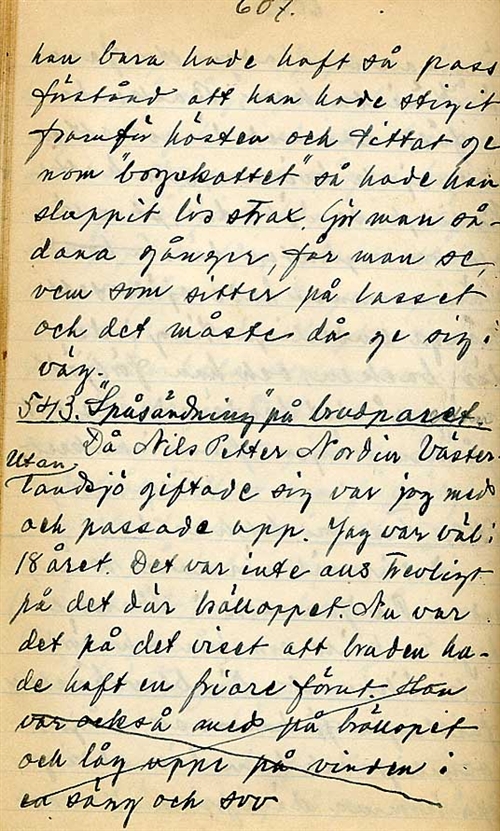 607.
han bara hade haft så pass
förstånd att han hade stigit
framför hästen och tittat ge
nom "bogukattet" så hade han
sluppit lös strax. Gör man så-
dana gånger, får man se,
vem som sitter på lasset
och det måste då ge sig i
väg.
543. "Spåsändning" på brudparet.
Då Nils Petter Nordin Väster-
utan
landsjö giftade sig var jag med
och passade upp. Jag var väl i
18 året. Det var inte alls trevligt
på det där bålloppet. Nu var
det på det viset att bruden ha-
de haft en friare förut. Han
var också med på bröllopet
och låg uppe på vinden i
en säng och sov